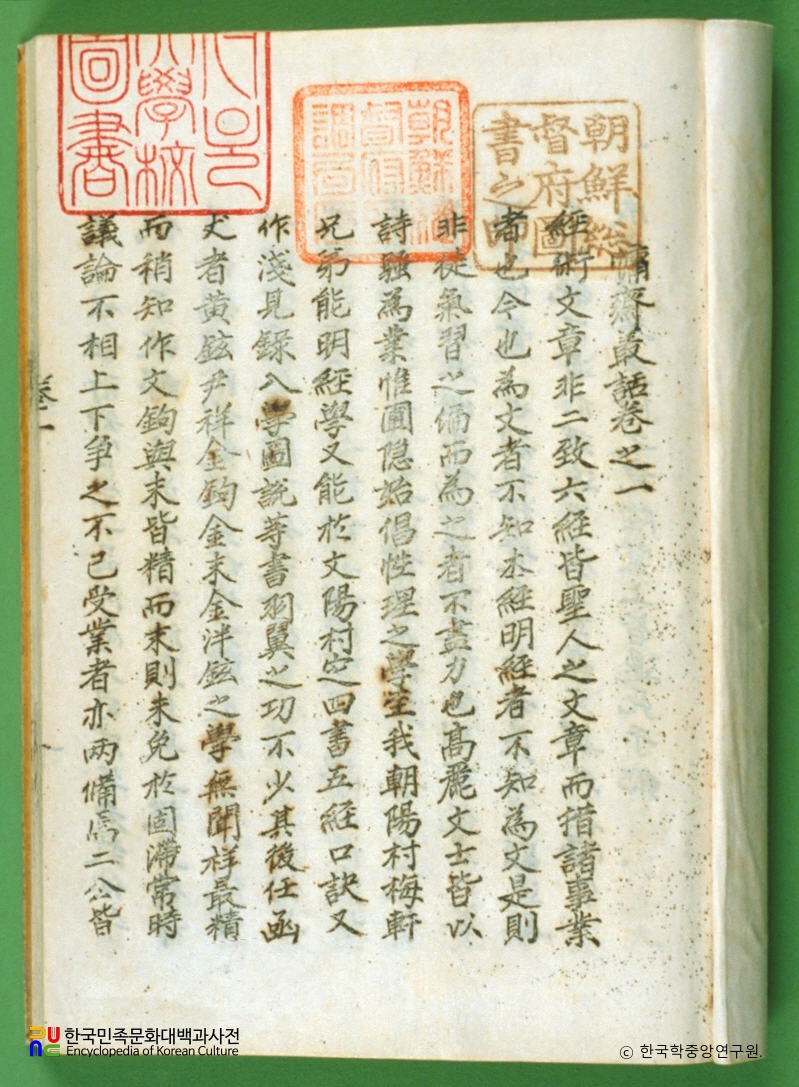 慵齋叢話卷之一
經術文章非二致六經皆聖人之文章而措諸事業
者也今也為文者不知本經明經者不知為文是則
非徒氣習之偏而為之者不盡力也高麗文士皆以
詩騷為業惟圃隐始倡性理之學至我朝陽村梅軒
兄弟能明經學又能於文陽村定四書五經口訣又
作淺見錄入學圖說䓁書羽翼之功不少其後任函
丈者黃鉉尹祥金鉤金末金泮鉉之學無聞祥最精
而稍知作文鉤與末皆精而末則未免於固滯常時
議論不相上下爭之不已受業者亦兩備焉二公皆
朝鮮総
督府圖
書之印
學校
圖書
卷一
한국민족문화대백과사전
Encyclopedia of Korean Culture
© 한국학중앙연구원.